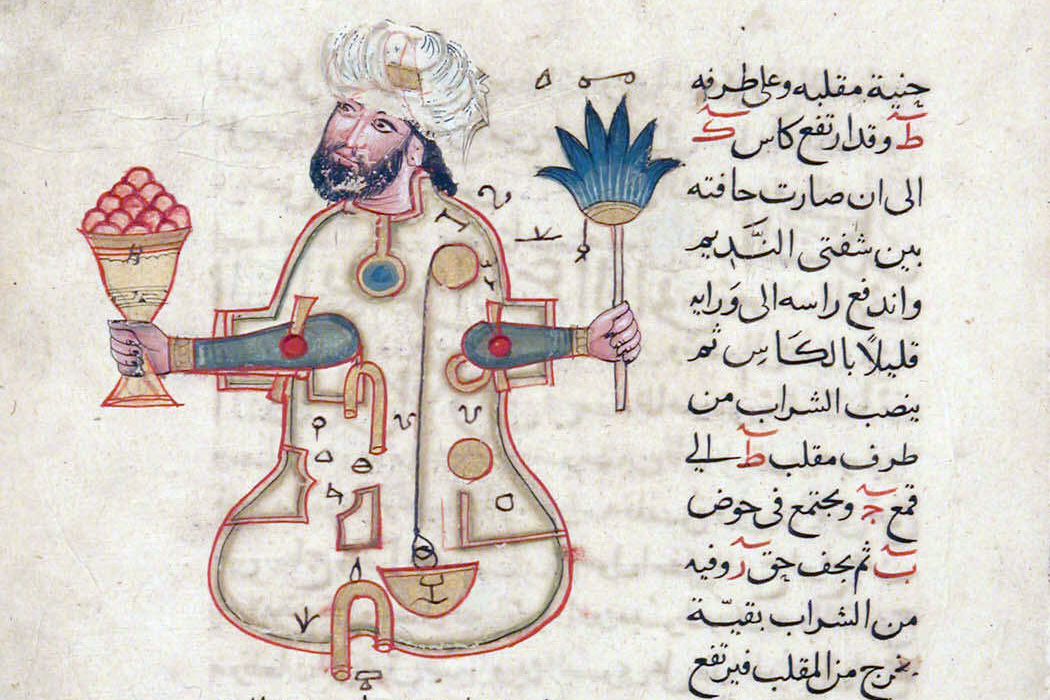 جنية مقلبه وعلى طرفه
ط وقد ارتفع كاس ك
الى ان صارت حافته
بين شفتى النَّديم
واندفع راسه الى وَرايه
قليلًا بالكَاسِ ثم
ينصب الشراب من
طرف مقلب ط الى
قمع ج ويجتمع فى حوض
ب ثم يجف حق ر وفيه
من الشراب بقيّة
يخرج من المقلب فيرتفع